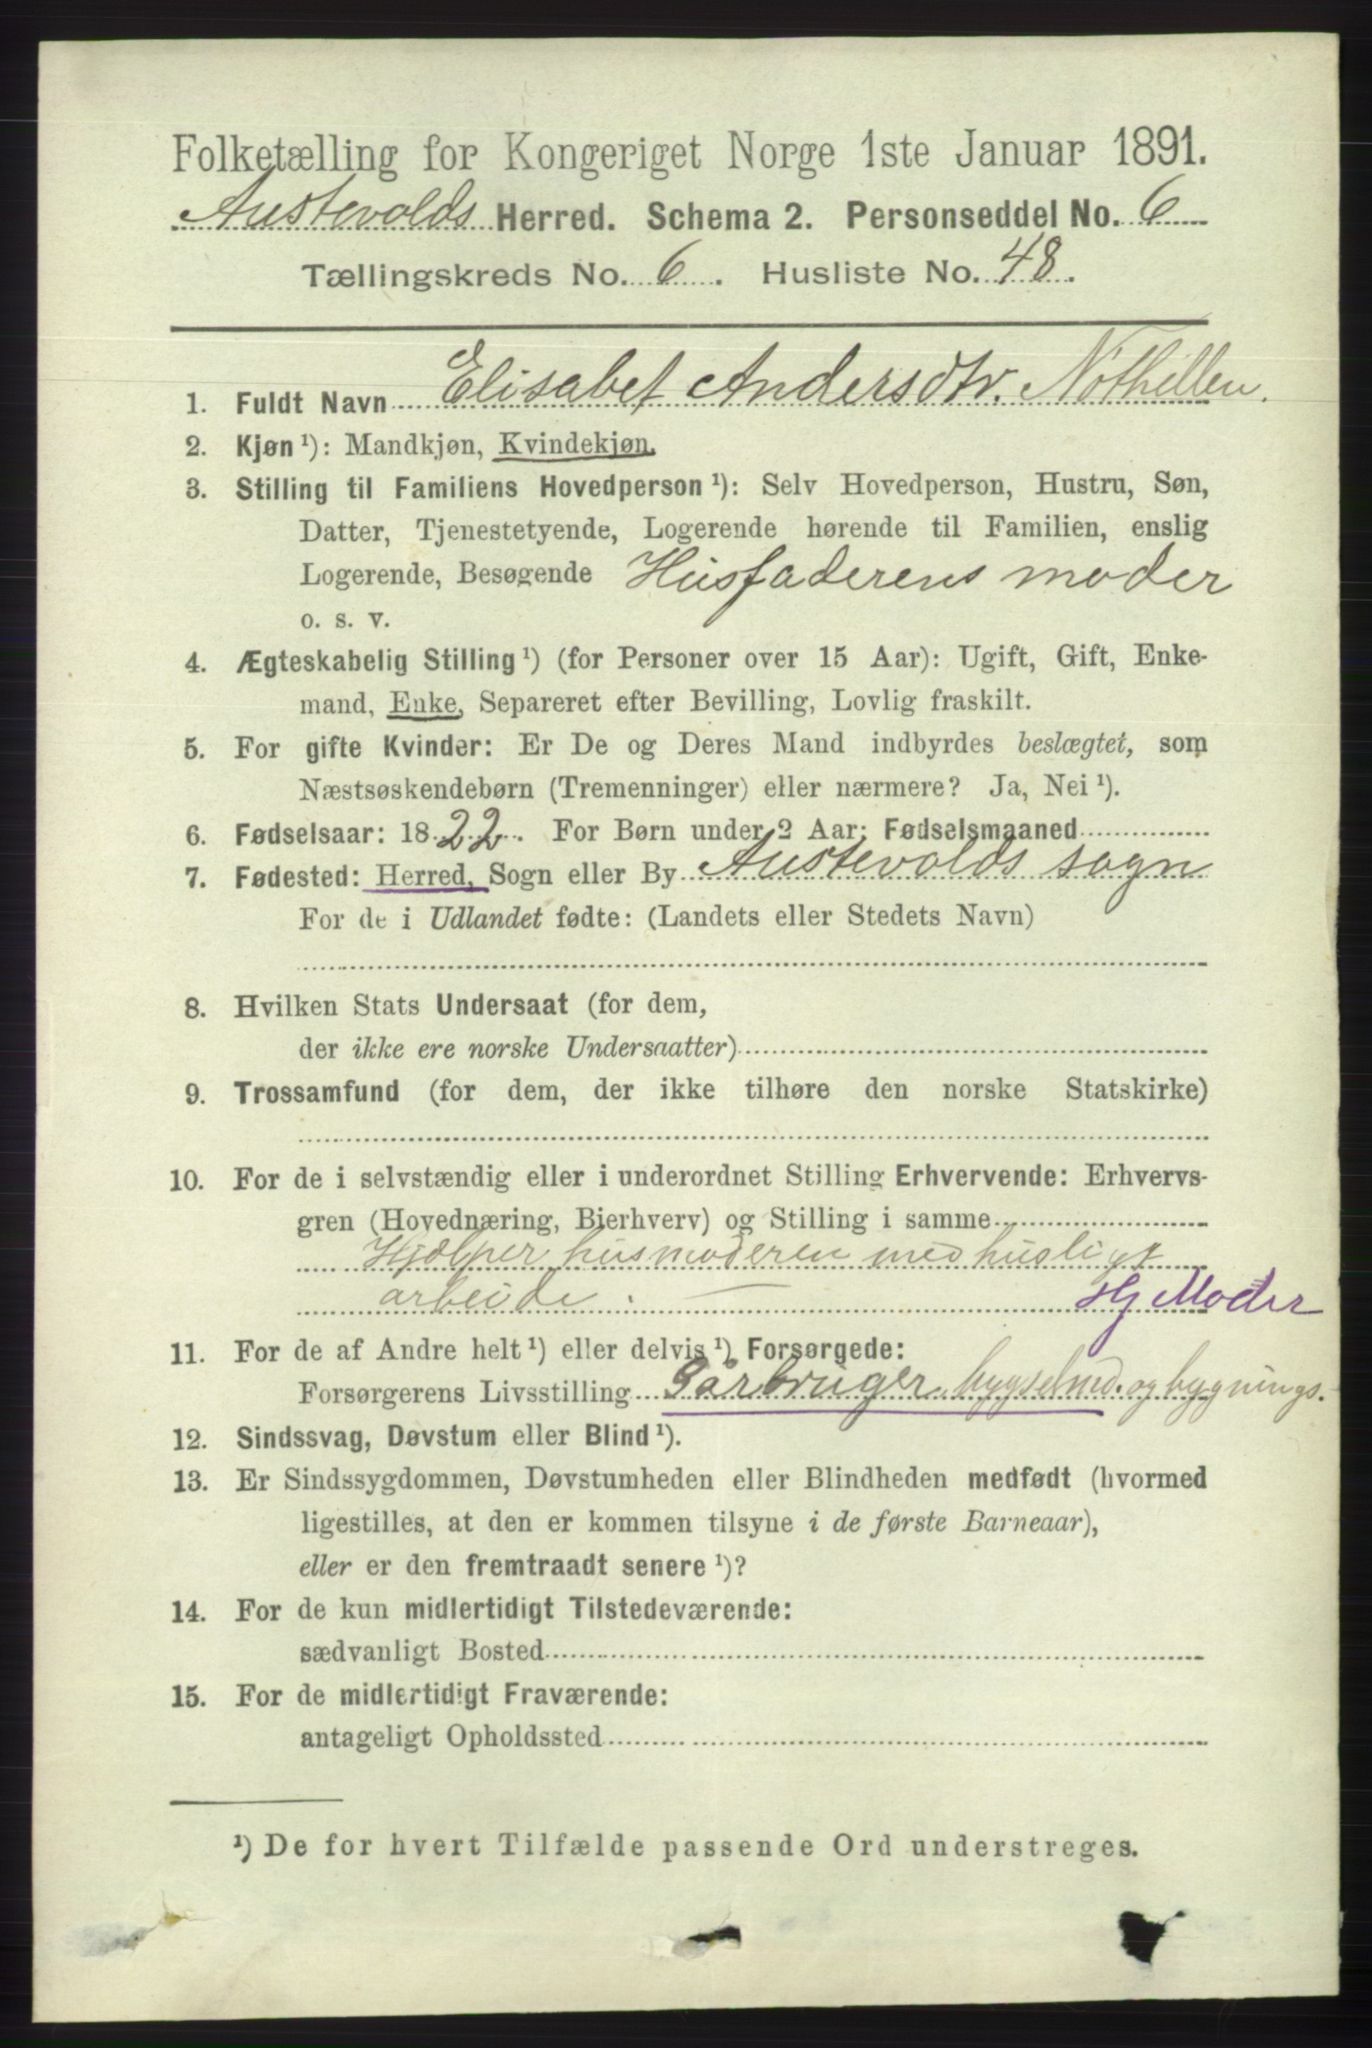 Folketælling for Kongeriget Norge 1ste Januar 1891.
Austevolds Herred. Schema 2. Personseddel No. 6
Tællingskreds No. 6. Husliste No. 48.
1. Fuldt Navn Elisabet Andersdtr. Nothillen.
2. Kjøn ¹): Mandkjøn, Kvindekjøn.
3. Stilling til Familiens Hovedperson ¹): Selv Hovedperson, Hustru, Søn,
Datter, Tjenestetyende, Logerende hørende til Familien, enslig
Logerende, Besøgende Husfaderens moder
o. s. v.
4. Ægteskabelig Stilling ¹) (for Personer over 15 Aar): Ugift, Gift, Enke-
mand, Enke, Separeret efter Bevilling, Lovlig fraskilt.
5. For gifte Kvinder: Er De og Deres Mand indbyrdes beslægtet, som
Næstsøskendebørn (Tremenninger) eller nærmere? Ja, Nei ¹).
6. Fødselsaar: 1822. For Børn under 2 Aar: Fødselsmaaned
7. Fødested: Herred, Sogn eller By Austevolds sogn
For de i Udlandet fødte: (Landets eller Stedets Navn)
8. Hvilken Stats Undersaat (for dem,
der ikke ere norske Undersaatter)
9. Trossamfund (for dem, der ikke tilhøre den norske Statskirke)
10. For de i selvstændig eller i underordnet Stilling Erhvervende: Erhvervs-
gren (Hovednæring, Bierhverv) og Stilling i samme
Hjælper husmoderen med husligt
arbeide. Hg Moder
11. For de af Andre helt ¹) eller delvis ¹) Forsørgede:
Forsørgerens Livsstilling Gårbruger, bygselmd. og bygnings.
12. Sindssvag, Døvstum eller Blind ¹).
13. Er Sindssygdommen, Døvstumheden eller Blindheden medfødt (hvormed
ligestilles, at den er kommen tilsyne i de første Barneaar),
eller er den fremtraadt senere ¹)?
14. For de kun midlertidigt Tilstedeværende:
sædvanligt Bosted
15. For de midlertidigt Fraværende:
antageligt Opholdssted
¹) De for hvert Tilfælde passende Ord understreges.